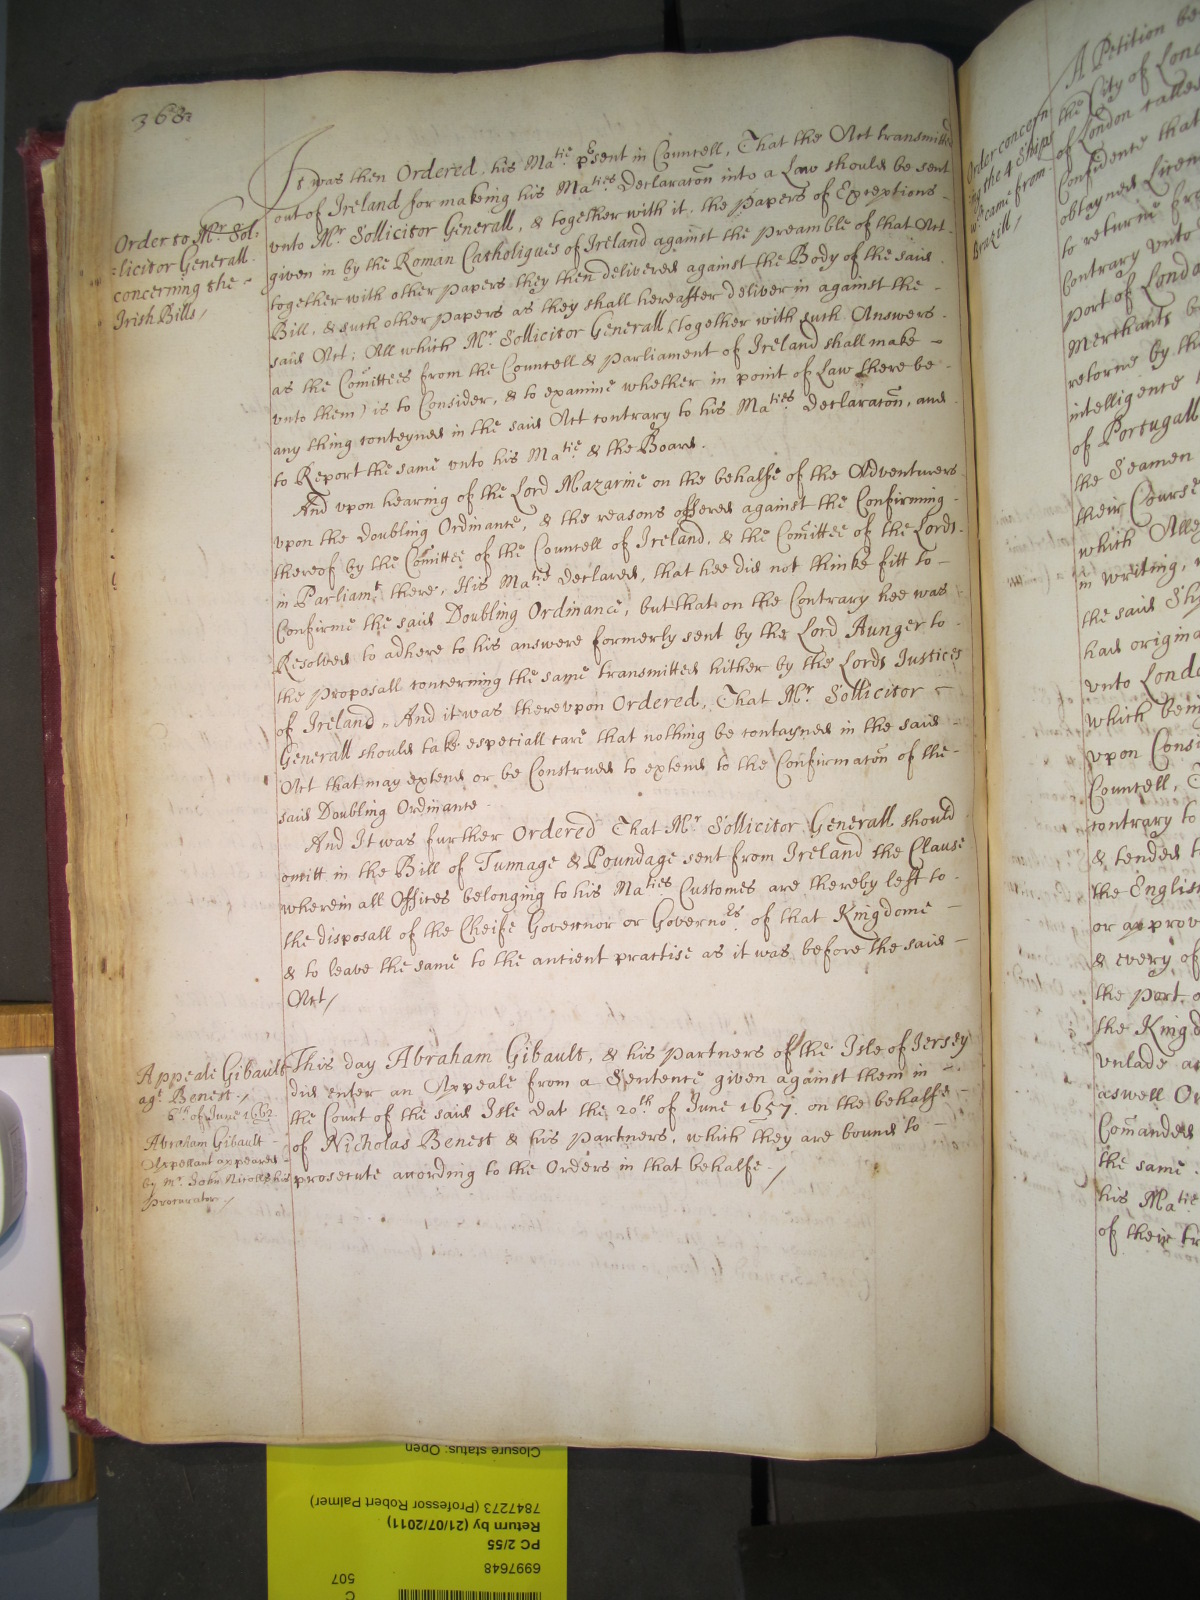 368
Order to Mr. Sol:
=licitor Generall
concerning the
Irish Bills/
It was then Ordered, his Matie. present in Councell, That the Act transmitted
out of Ireland for making his Maties Declaraton into a Law should be sent
unto Mr. Sollicitor Generall, & together with it, the papers of Exceptions
given in by the Roman Catholiques of Ireland against the preamble of that Act
together with other papers they then delivered against the Body of the said
Bill, & such other papers as they shall hereafter deliver in against the
said Act; All which Mr. Sollicitor Generall (together with such Answers
as the Comittees from the Councell & Parliament of Ireland shall make
vnto them) is to Consider, & to examine whether in point of Law there be
any thing conteyned in the said Act contrary to his Maties. Declaraton, and
to Report the same vnto his Matie. & the Board.
And vpon hearing of the Lord Mazarine on the behalfe of the Adventurers
vpon the Doubling Ordinance, & the reasons offered against the Confirming
thereof by the Comittee of the Councell of Ireland, & the Comittee of the Lords
in Parliamt. there, His Matie Declared, that hee did not thinke fitt to
Confirme the said Doubling Ordinance, but that on the Contrary hee was
Resolved to adhere to his answere formerly sent by the Lord Aunger to
the proposall concerning the same transmitted hither by the Lords Justices
of Ireland. And it was therevpon Ordered, That Mr. Sollicitor
Generall should take especiall care that nothing be contayned in the said
Act that may extend or be Construed to extend to the Confirmaton of the
said Doubling Ordinance.
And It was further Ordered That Mr. Sollicitor Generall should
omitt in the Bill of Tunnage & Poundage sent from Ireland the Clause
wherein all Offices belonging to his Maties Customes are thereby left to
the disposall of the Cheife Governor or Governors. of that Kingdome
& to leave the same to the antient practise as it was before the said
Act/
Appeale Gibault
agt. Benest./
6th. of June 1662.
Abraham Gibault
Appellant appeared
by Mr. John Nicolls his
procurator./
This day Abraham Gibault, & his partners of the Isle of Jersey
did enter an Appeale from a Sentence given against them in
the Court of the said Isle dat the 20th of June 1657. on the behalfe
of Nicholas Benest & his partners, which they are bound to
prosecute according to the Orders in that behalfe./
Order concern:
ing the 4 Ships
came from
Brazill/
A Petition be
the City of Lond
of London called
Confidence that
obtayned Licen
to returne fr
Contrary vnto
port of Londo
Merchants b
retorne by th
intelligence
of Portugall
the Seamen
their Course
which Alle
in writing,
the said Sh
had origina
vnto Londo
which bein
vpon Consi
Councell, T
contrary to
& tended t
the English
or approv
& every of
the port o
the Kingd
vnlade a
aswell Or
Comanded
the same
his Matie
of their tr
Closure status: Open
7847273 (Professor Robert Palmer)
Return by (21/07/2011)
PC 2/55
6997648
507
C